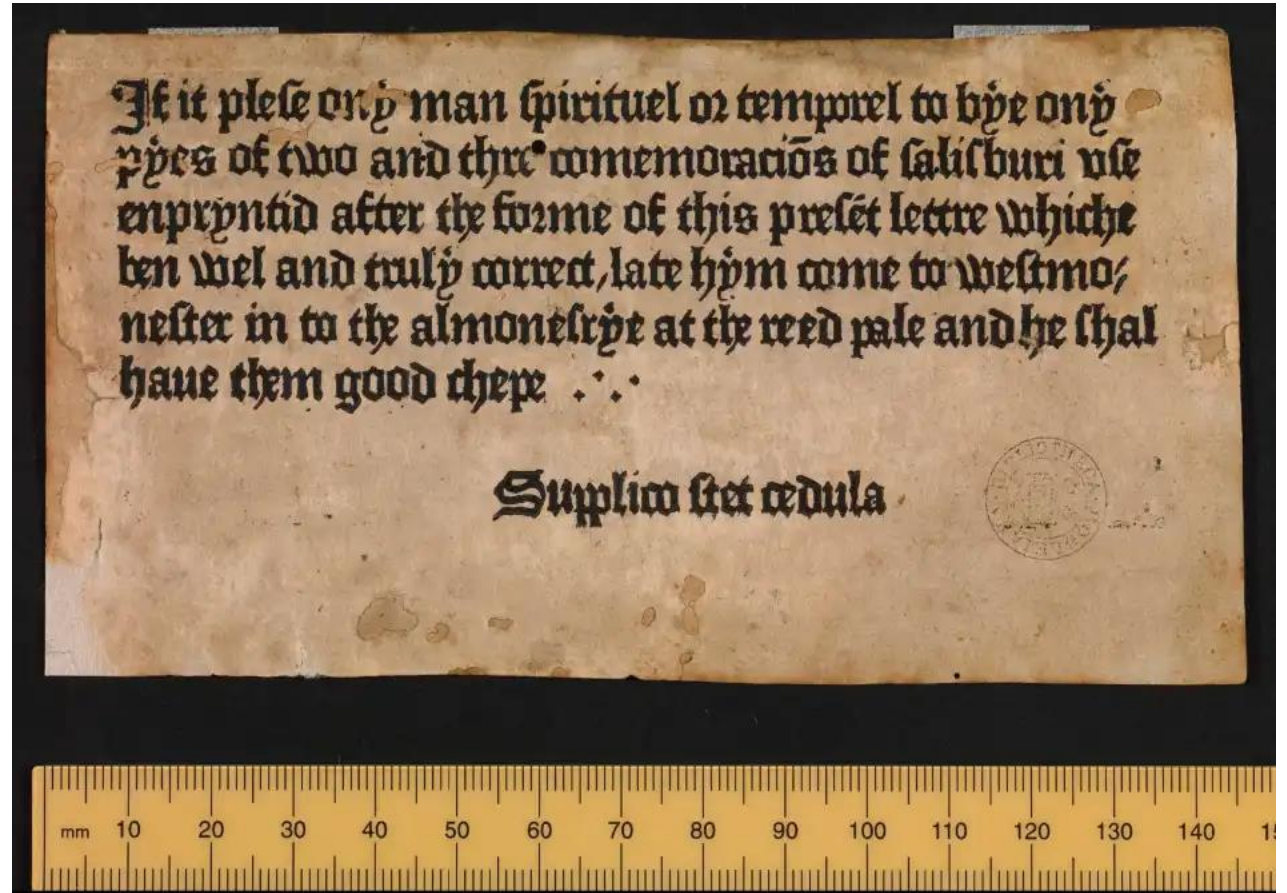 If it plese ony man spirituel or temporel to bye ony
pyes of two and thre comemoraciōs of salisburi vse
enpryntid after the forme of this presēt lettre whiche
ben wel and truly correct, late hym come to westmo/
nester in to the almonesrye at the reed pale and he shal
haue them good chepe .·.
Supplico stet cedula
BIBLIOTHECA
mm 10 20 30 40 50 60 70 80 90 100 110 120 130 140